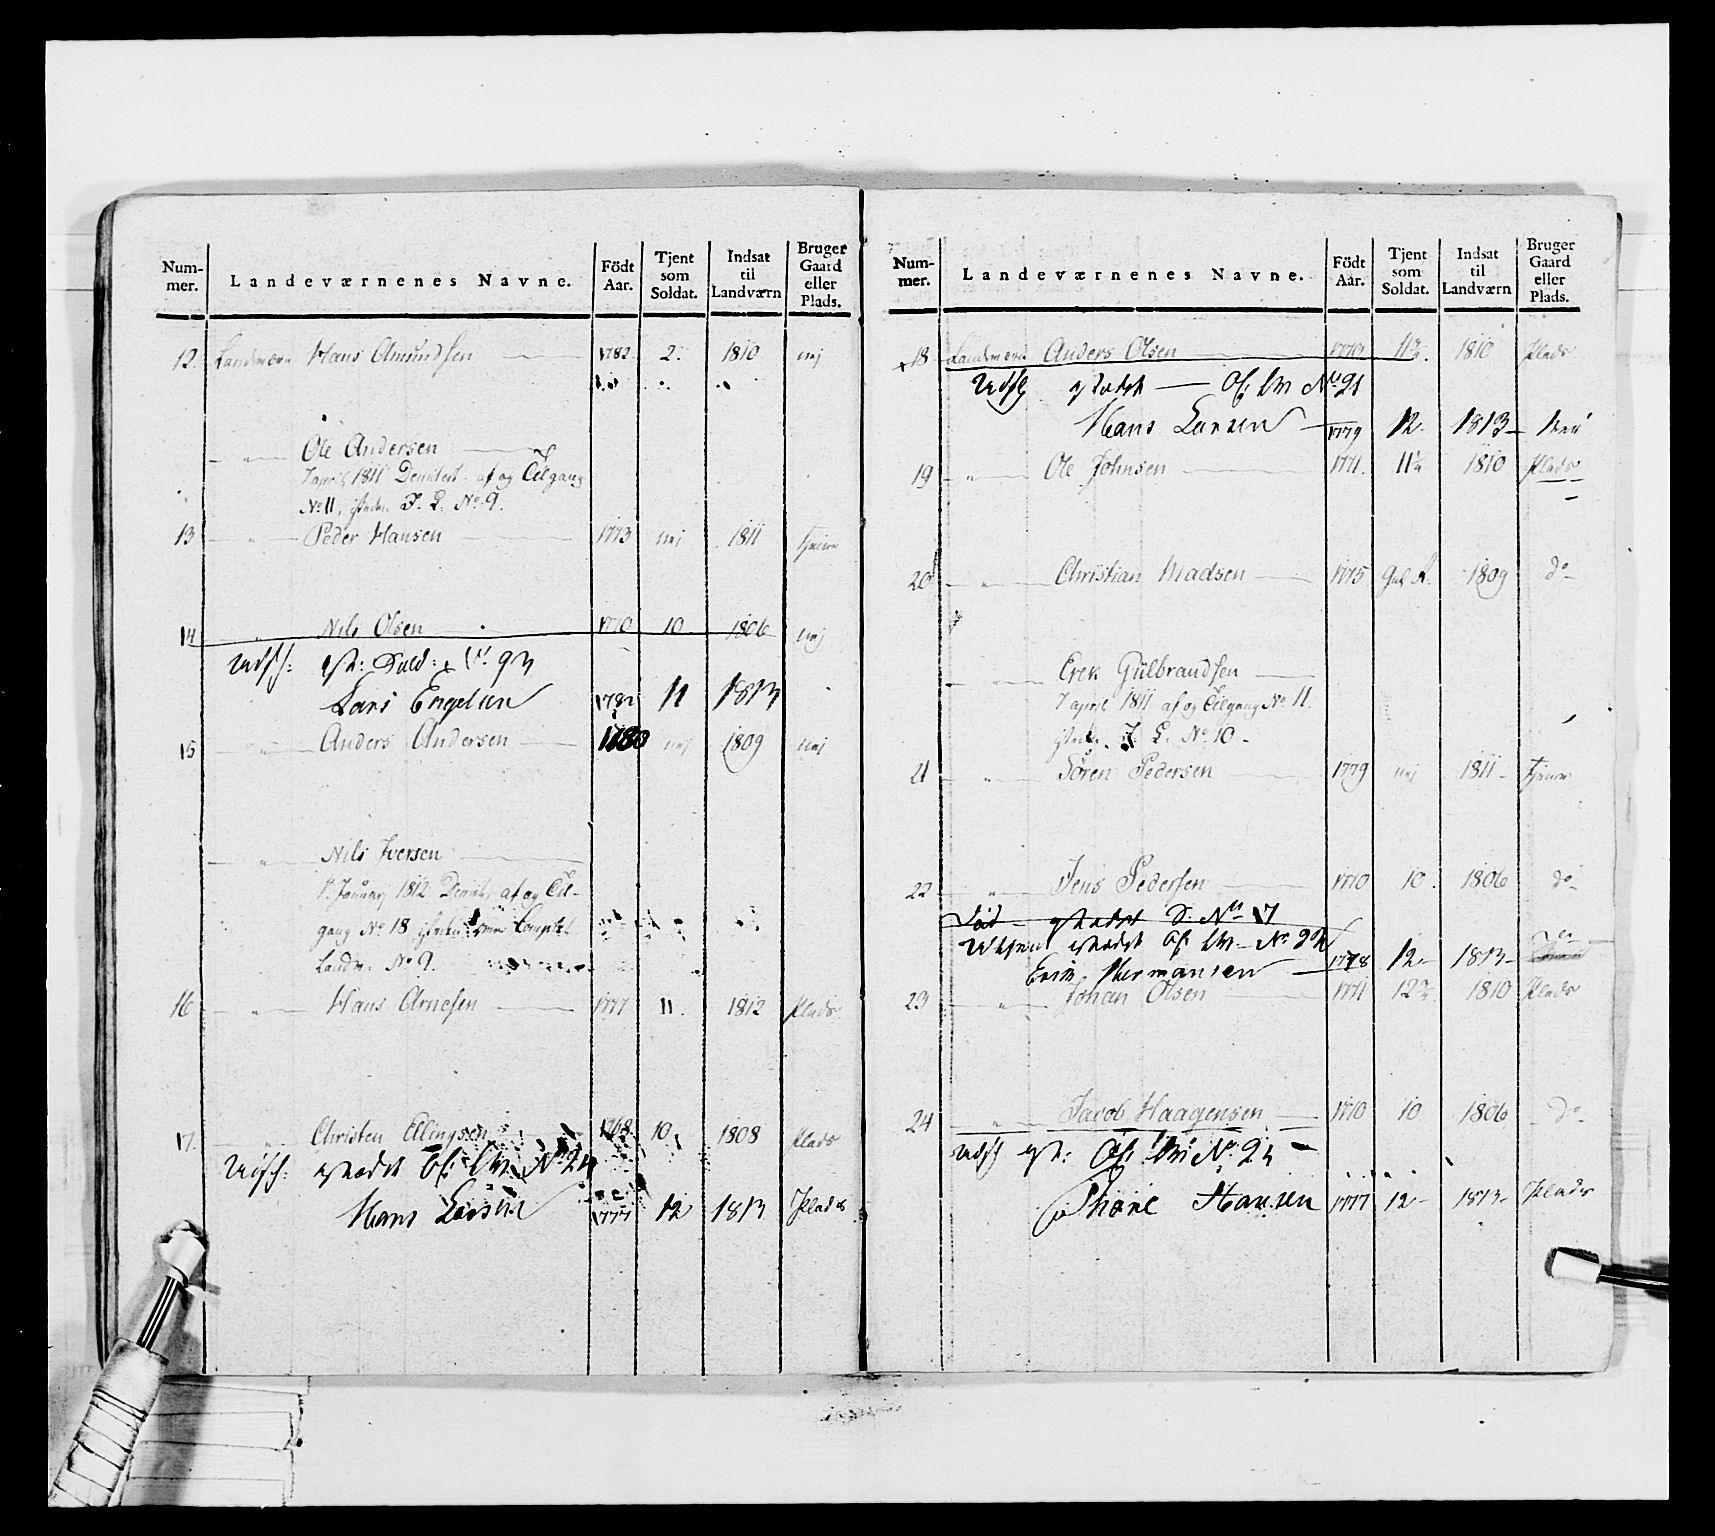 Num-
mer.
Landeværnenes Navne.
Födt
Aar.
Tjent
som
Soldat.
Indsat
til
Landværn
Bruger
Gaard
eller
Plads.
12. Landeværn Hans Amundsen 1782. 2. 1810 nej
" Ole Andersen
7 april 1811 af og Tilgang
No 11, J. L. No 9.
13 " Peder Hansen 1773 nej 1811
14 " Nils Olsen 1770 10 1806 nej
Udsk: No 93
Lars Engelsen 11 1813
15 " Anders Andersen 1780 nej 1809 nej
" Nils Iversen
1. Januarj 1812 af og Til-
gang No 18
Landv. No 9.
16 " Hans Arnesen 1777 11. 1812 Plads
17. " Christen Ellingsen 1768 10 1808 Plads
Udsk:
Hans Larsen 1777 12 1813 Plads
Num-
mer.
Landeværnenes Navne.
Födt
Aar.
Tjent
som
Soldat.
Indsat
til
Landværn
Bruger
Gaard
eller
Plads.
18. Landeværn Anders Olsen 1770 1810 Plads
No 21
Hans Larsen 1779 12 1813 nei
19 " Ole Johnsen 1771. 1810 Plads
20 " Christian Madsen 1775 1809 do
" Erek Gulbrandsen
7 april 1811 af og Tilgang No 11.
L. No 10
21 " Sören Pedersen 1779 nej 1811
22 " Jens Pedersen 1770 10. 1806 do
No 17
Erik Hermansen 1778 12 1813
23 " Johan Olsen 1771 1810 Plads
24 " Jacob Haagensen 1770 10 1806 do
Udsk No 24
Thore Hansen 1777 12 1813 Plads